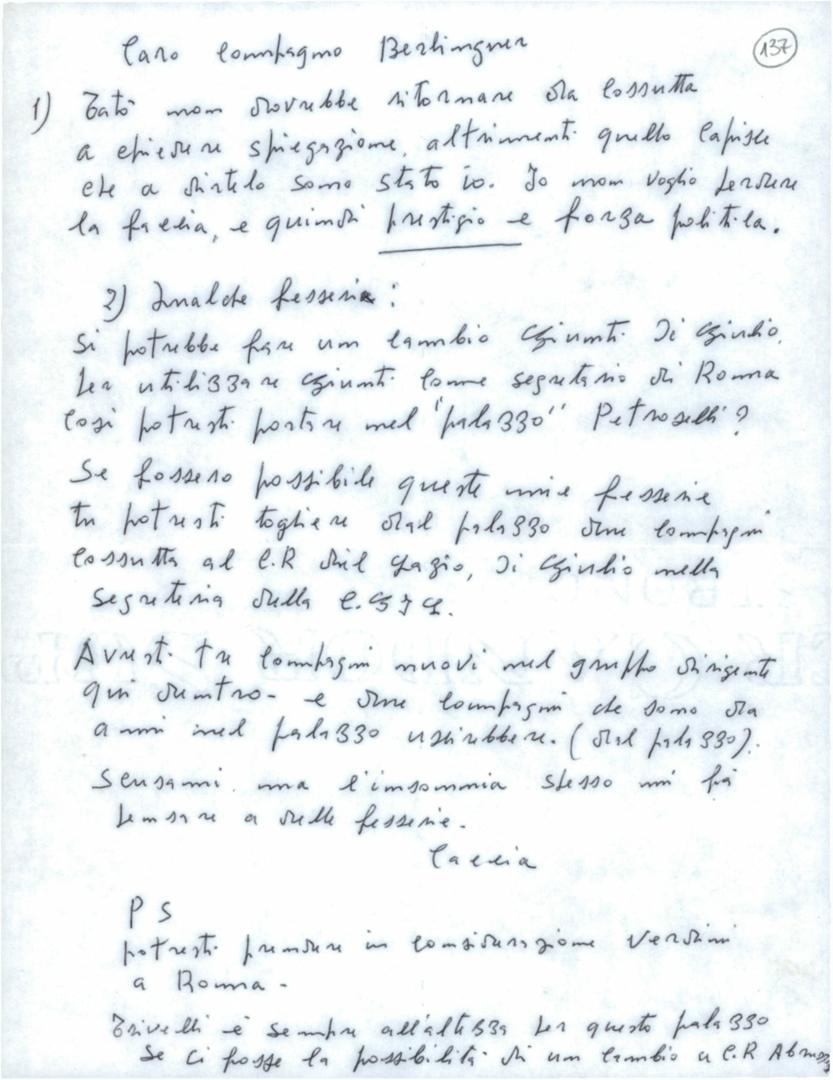 137
Caro compagno Berlinguer
1) Tatò non dovrebbe ritornare da Cossutta
a chiedere spiegazione, altrimenti quello capisce
che a dirtelo sono stato io. Io non voglio perdere
la faccia, e quindi prestigio e forza politica.
2) Qualche fesseria:
Si potrebbe fare un cambio Giunti Di Giulio,
per utilizzare Giunti come segretario di Roma
così potresti portare nel "palazzo" Petroselli?
Se fossero possibile queste mie fesserie
tu potresti togliere dal palazzo due compagni
Cossutta al C.R del Lazio, Di Giulio nella
Segreteria della C.G.I.L.
Avresti tre compagni nuovi nel gruppo dirigente
qui dentro - e due compagni che sono da
anni nel palazzo uscirebbere. (dal palazzo).
Scusami ma l'insonnia spesso mi fà
pensare a delle fesserie.
Caccia
P S
potresti prendere in considerazione Verdini
a Roma -
Trivelli è sempre all'altezza per questo palazzo
Se ci fosse la possibilità di un cambio a C.R